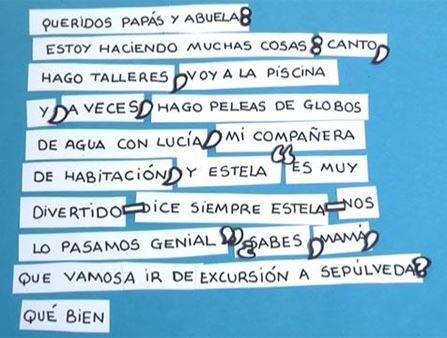 QUERIDOS PAPÁS Y ABUELA:
ESTOY HACIENDO MUCHAS COSAS: CANTO,
HAGO TALLERES, VOY A LA PISCINA
Y, A VECES, HAGO PELEAS DE GLOBOS
DE AGUA CON LUCÍA, MI COMPAÑERA
DE HABITACIÓN, Y ESTELA. “ES MUY
DIVERTIDO – DICE SIEMPRE ESTELA – NOS
LO PASAMOS GENIAL”. ¿SABES, MAMÁ,
QUE VAMOS A IR DE EXCURSIÓN A SEPÚLVEDA?
QUÉ BIEN